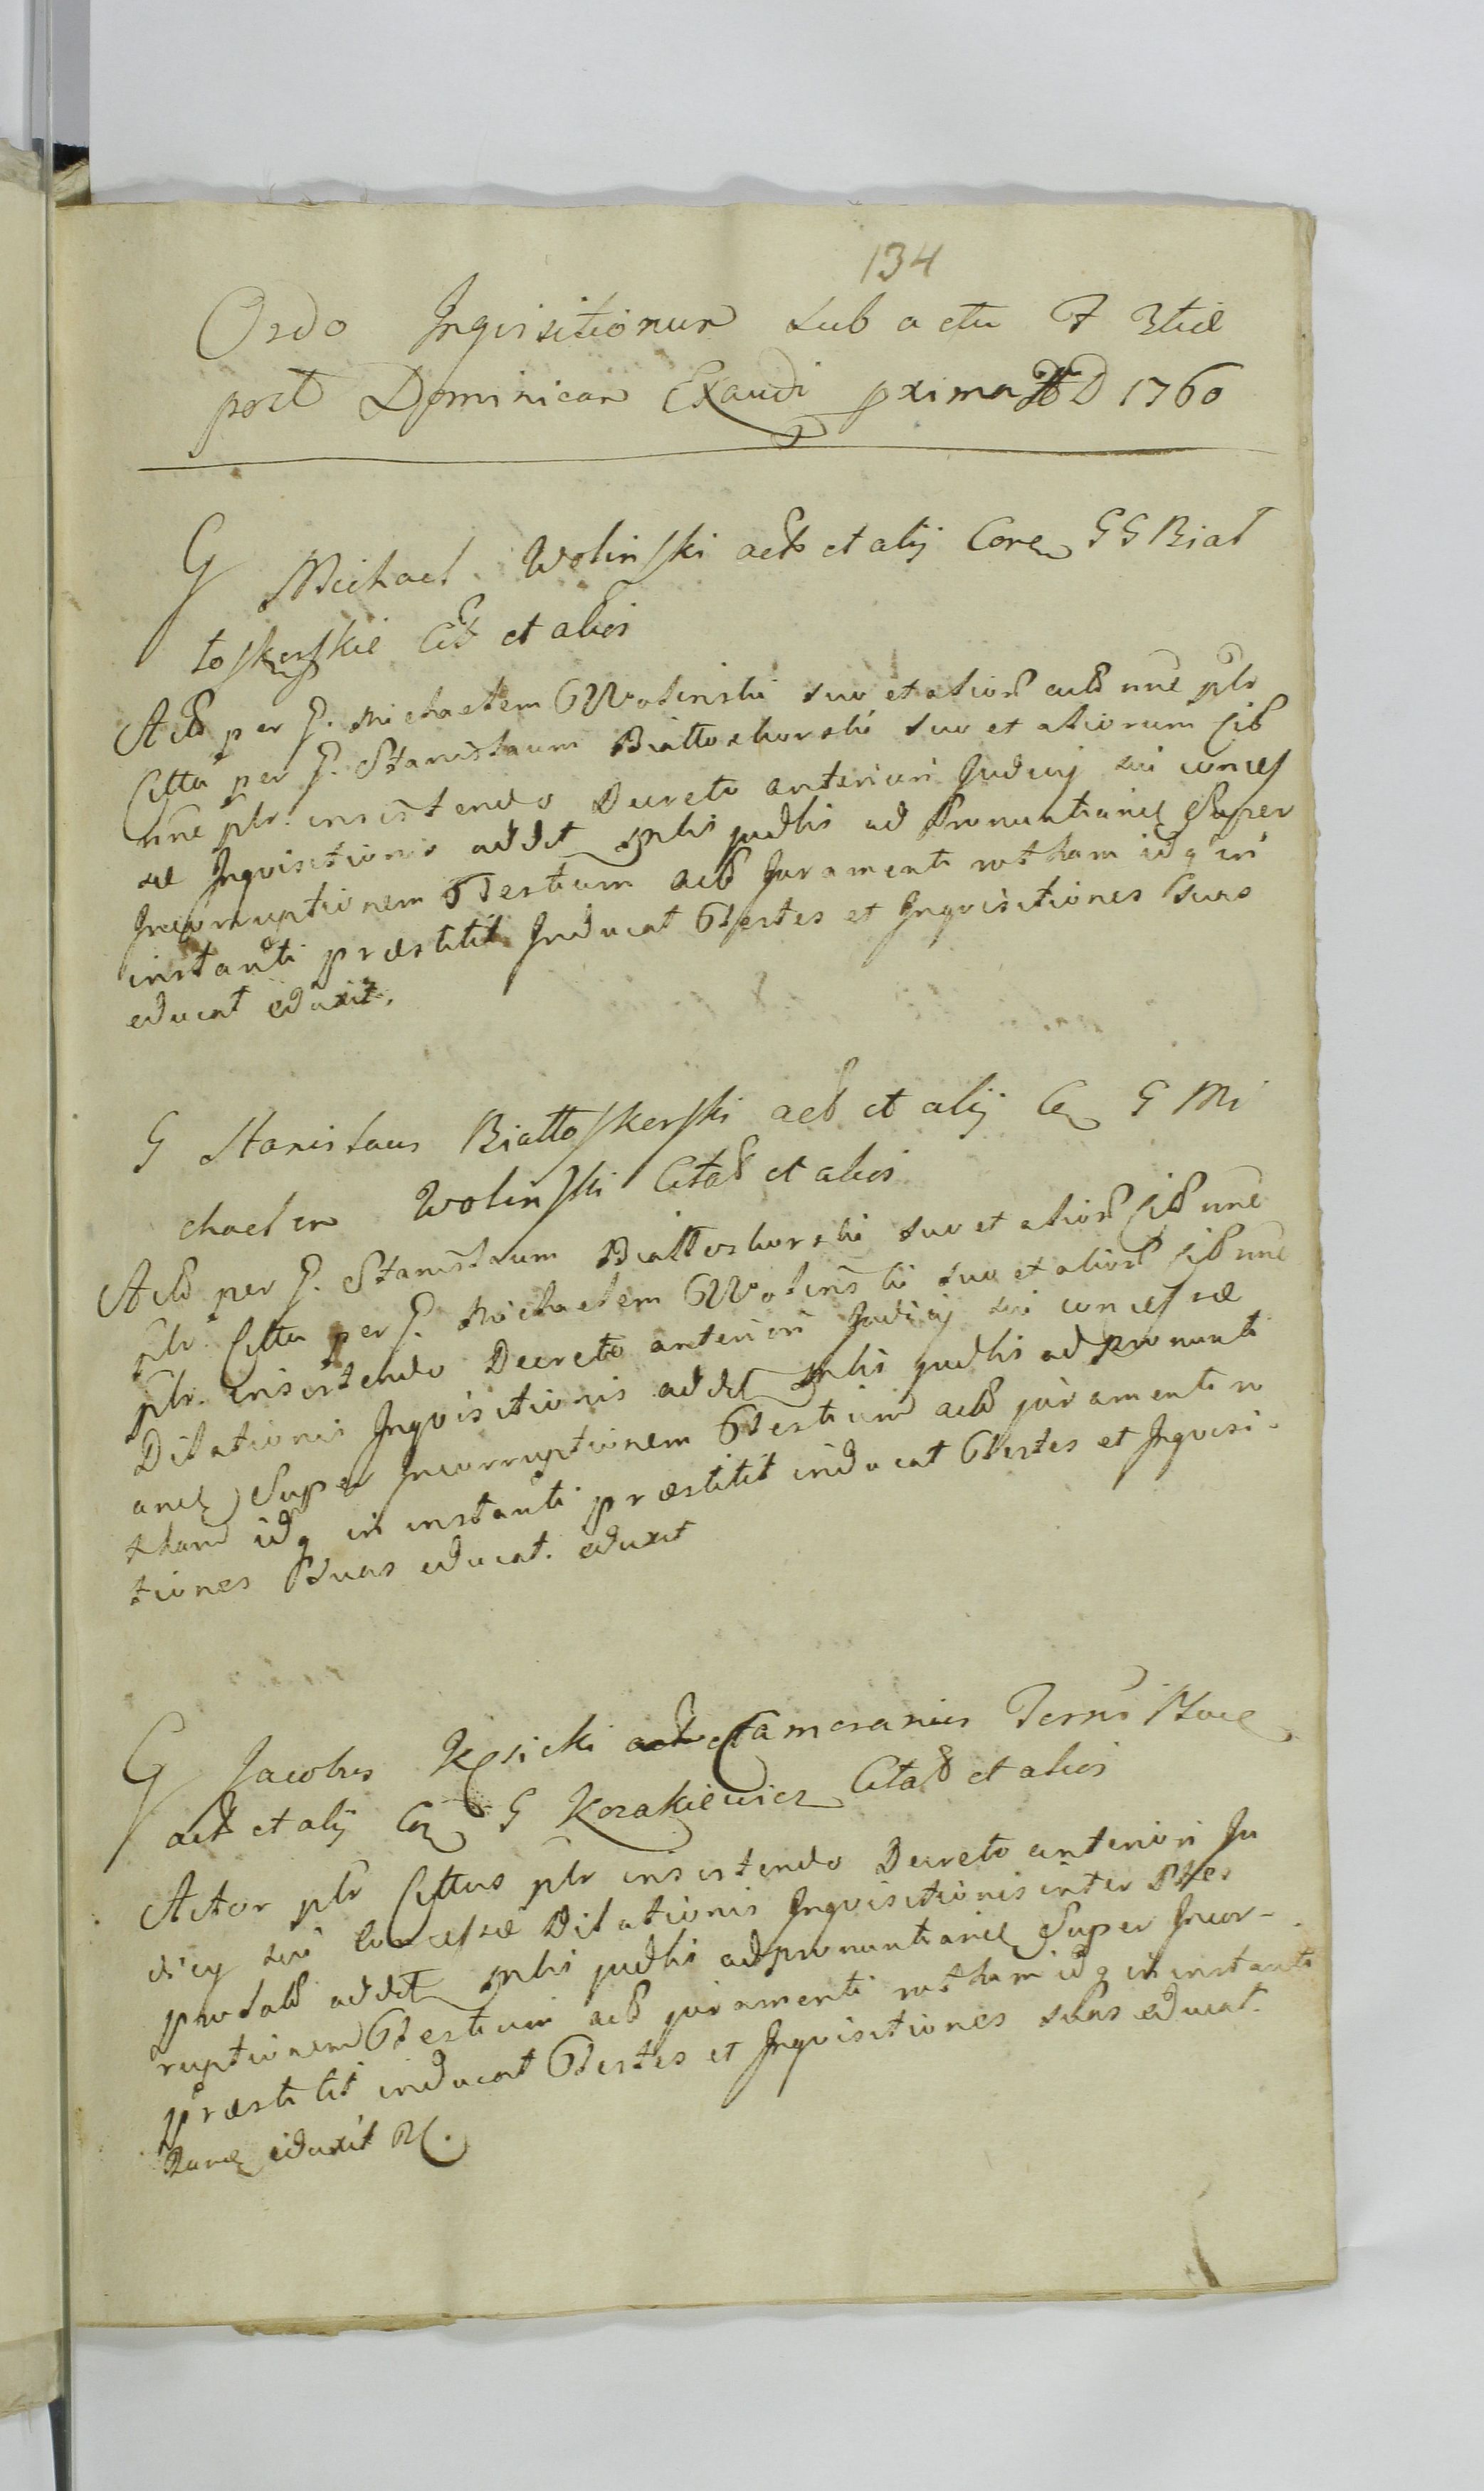 134
Ordo Inquisitionum sub actu F 3tiæ
post Dominicam Exaudi pxima AD 1760
G Michael Wolinski actr et alij Con GG Biał
łoskorskie Citt et alios
Actr per G. Michaelem Wolinski suo et alior actr nne plr
Citta per G. Stanislaum Białłoskorski suo et aliorum Cit
nne plr. insistendo Decreto anteriori Judicij sui conces
sæ Inquisitionis addit mlis judlis ad Pronuntianē Super
Incorruptionem Testium actr Juramenti rotham idq in
instanti præstitit Inducat Testes et Inquisitiones Suas
educat eduxit.
G Stanislaus Białłoskorski actr et alij Con G Mi
chaelem Wolinski Citat et alios
Actr per G. Stanislaum Białłoskorski suo et alior Cit nne
plr Citta per G. Michaelem Wolinski suo et alior Cit nne
plr. insistendo Decreto anteriori Judicij sui concessæ
Dilationis Inquisitionis addit mlis judlis ad pronunti
anē Super Incorruptionem Testium actr juramenti ro
tham idq in instanti præstitit inducat Testes et Inquisi-
tiones Suas educat. eduxit
G Jacobus Kęsicki Camerarius Terrs
actr et alij Con G Kozakiewicz Citat et alios
Actor plr Cittus plr insistendo Decreto anteriori Ju
dicij sui concessæ Dilationis Inquisitionis inter Ptes
addit mlis judlis ad pronuntianē Super Incor-
ruptionem Testium actr juramenti rotham idq in instanti
præstitit inducat Testes et Inquisitiones suas educat.
eduxit